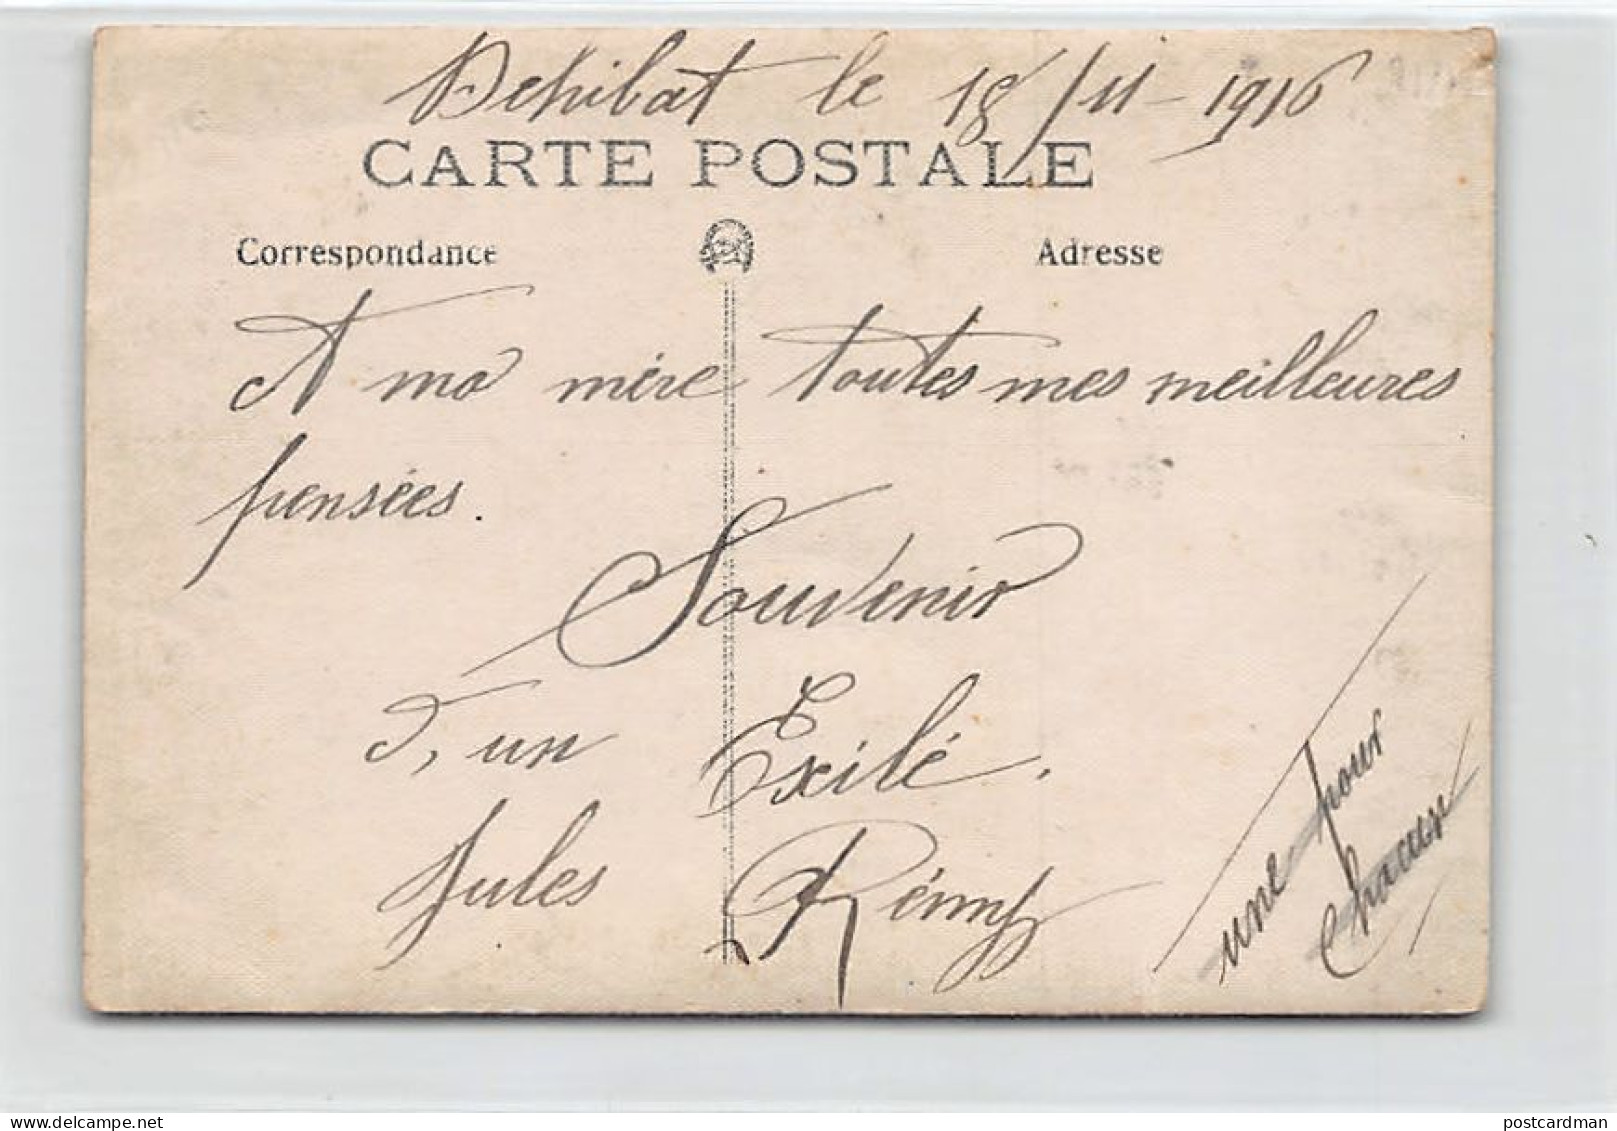 Dehibat le 18/11-1916
CARTE POSTALE
Correspondance Adresse
A ma mère toutes mes meilleures
pensées.
Souvenir
d, un Exilé.
Jules Rémy
une pour
Chacun
postcardman